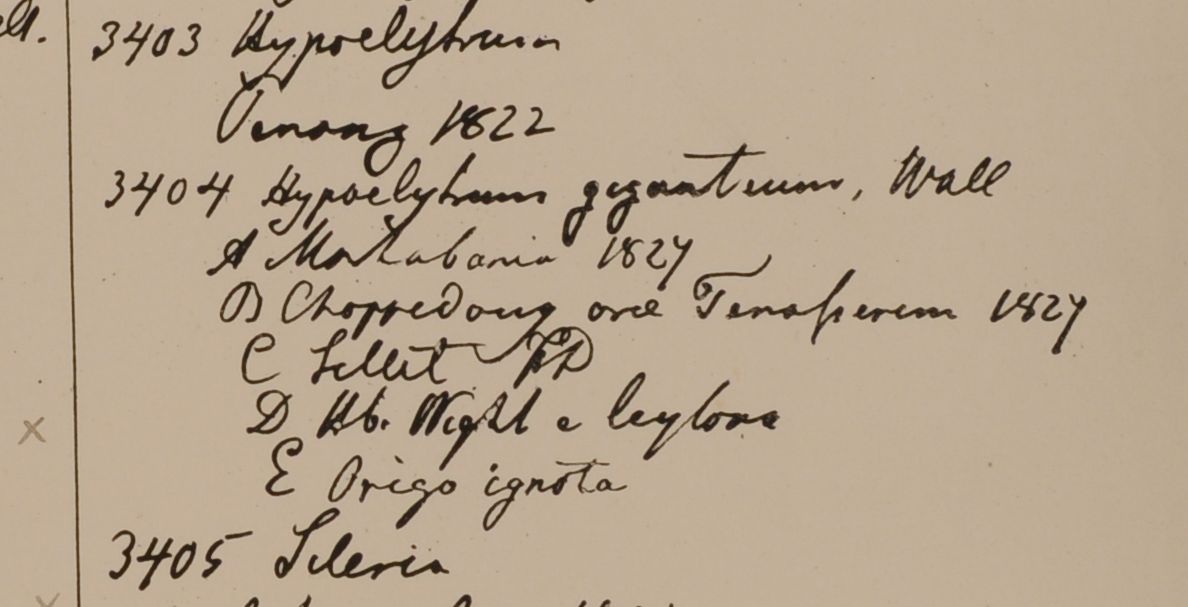 3403 Hypoelytrum
Penang 1822
3404 Hypoelytrum giganteum, Wall
A Martabania 1827
B Choppedong oræ Tenasserim 1827
C Sillet FD
D Hb. Wight e Ceylona
E Origo ignota
3405 Scleria